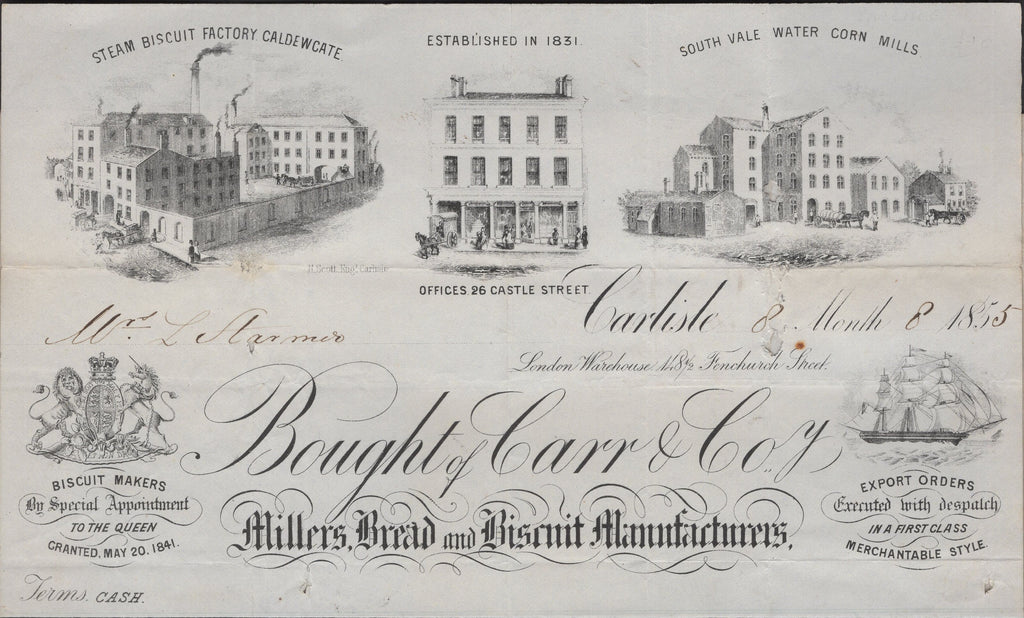 STEAM BISCUIT FACTORY CALDEWGATE.
ESTABLISHED IN 1831.
SOUTH VALE WATER CORN MILLS
H. Scott, Engr. Carlisle
OFFICES. 26 CASTLE STREET.
Carlisle 8 Month 8 1855
Mrs L Starmer
London Warehouse 148½ Fenchurch Street.
Bought of Carr & Coy.
Millers, Bread and Biscuit Manufacturers.
BISCUIT MAKERS
By Special Appointment
TO THE QUEEN
GRANTED, MAY 20. 1841.
EXPORT ORDERS
Executed with despatch
IN A FIRST CLASS
MERCHANTABLE STYLE.
Terms. CASH.